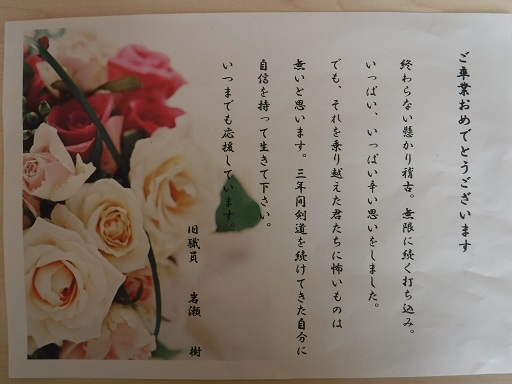 ご卒業おめでとうございます
終わらない懸かり稽古。無限に続く打ち込み。
いっぱい、いっぱい辛い思いをしました。
でも、それを乗り越えた君たちに怖いものは
無いと思います。三年間剣道を続けてきた自分に
自信を持って生きて下さい。
いつまでも応援しています。
旧職員 岩瀬 樹